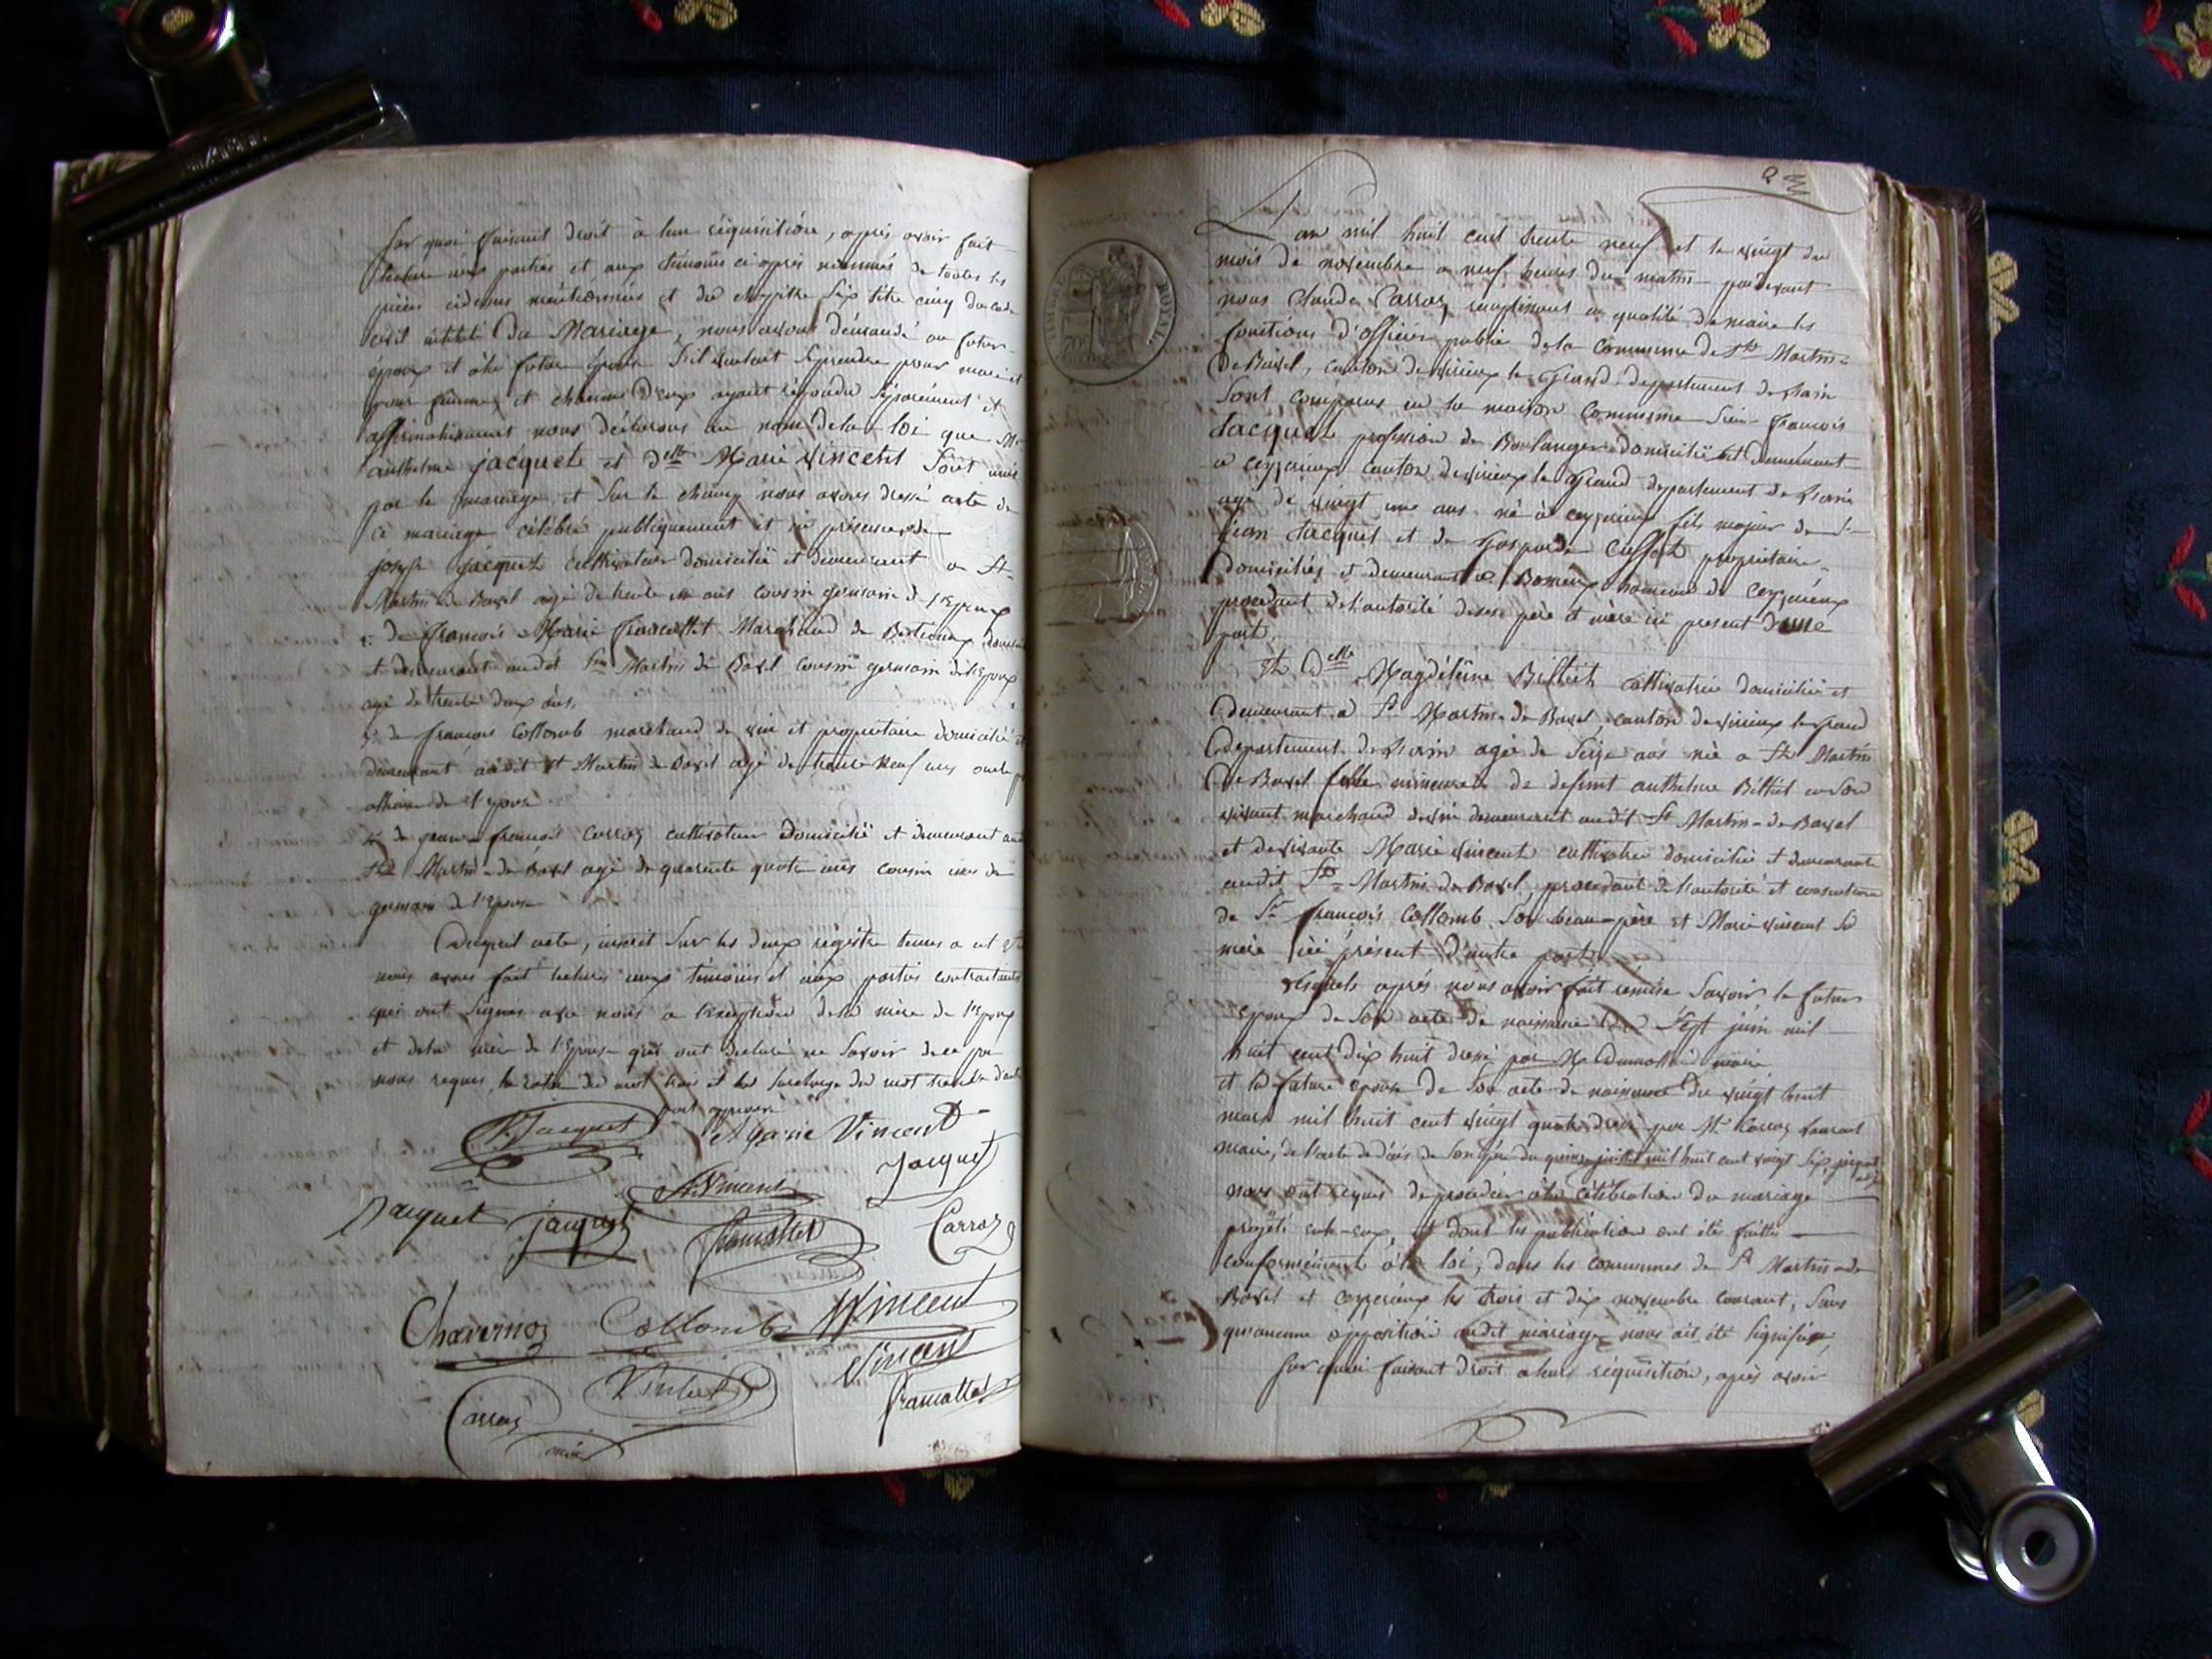 Sur quoi faisant droit à leur réquisition, après avoir fait
lecture aux parties et aux témoins ci après nommés de toutes les
pièces cidessus mentionnées et du chapitre six titre cinq du code
civil intitulé Du Mariage, nous avons demandé au futur
époux et à la future épouse s'il veulent se prendre pour mari et
pour femme, et chacun d'eux ayant répondu séparément et
affirmativement nous déclarons au nom de la loi que Mr
anthelme jacquet et delle Marie Vincent sont unis
par le mariage et sur le champ nous avons dressé acte de
ce mariage célébré publiquement et en présence de
joseph jacquet cultivateur domicilié et demeurant a St
Martin de Bavel agé de trente ans cousin germain de l'epoux
2° de françois Marie framollet Marchand de Bestiaux
et demeurant audit St Martin de Bavel cousin germain de l'epoux
agé de trente deux ans,
3° de françois Collomb marchand de vin et propriétaire domicilié et
demeurant audit St Martin de Bavel agé de trente neuf ans oncle
de l'epouse
4° de jean françois Carraz cultivateur domicilié et demeurant
St Martin de Bavel agé de quarante quatre ans cousin issu de
germain de l'epouse
Duquel acte, inscrit sur les deux registre tenus a cet
nous avons fait lecture aux témoins et aux parties contractantes
qui ont signés avec nous a l'exception de la mère de l'epoux
et de la mère de l'epouse qui ont declaré ne savoir de ce
nous requis, la rature du mot trois et la surcharge du mot trente
sont approuvé
Jacquet Marie Vincent
Jacquet
Vincent
Jacquet jacquet framollet Carraz
Chavernoz Collomb Vincent
Vincent
framollet
Carraz
maire
TIMBRE ROYAL
70c
L'an mil huit cent trente neuf et le vingt du
mois de novembre a neuf heures du matin pardevant
nous Claude Carraz remplissant en qualité de maire les
fonctions d'officier public de la commune de St Martin-
De Bavel, canton de virieux le Grand département de Lain
Sont comparus en la maison commune Sieur françois
Jacquet profession de Boulanger domicilié et demeurant
a ceyzerieux canton de virieux le Grand département de Lain
agé de vingt une ans né à ceyzerieux fils majeur de Sr
jean Jacquet et de Gasparde propriétaire
domiciliés et demeurant a hameau de ceyzerieux
procedant de l'autorité de ses père et mère ici present d'une
part,
Et Delle Magdeleine Billiet cultivatrice domiciliée et
demeurant a St Martin de Bavel, canton de virieux le grand
Département de Lain agée de seize ans née a St Martin
De Bavel fille mineure de defunt anthelme Billiet en son
vivant marchand de vin demeurant audit St Martin-de Bavel
et de vivante Marie vincent cultivatrice domiciliée et demeurante
audit St Martin de Bavel, procedant de l'autorité et consentement
de Sr françois Collomb son beau-père et Marie vincent sa
mère ici présent d'autre part.
Lesquels après nous avoir fait remise savoir le futur
Epoux de son acte de naissance du Sept juin mil
huit cent dix huit dressé par Mr maire
et la future epouse de son acte de naissance du vingt huit
mars mil huit cent vingt quatre dressé par Mr Carraz Laurent
maire, de l'acte de décès de son père du quinze juillet mil huit cent vingt six,
nous ont requis de procéder à la célébration du mariage
projetté entr-eux, et dont les publication ont étés faittes
conformément à la loi, dans les communes de St Martin-de
Bavel et ceyzerieux les trois et dix novembre courant, sans
qu'aucune opposition audit mariage nous ait été signifiée,
Sur quoi faisant droit a leurs réquisition, après avoir